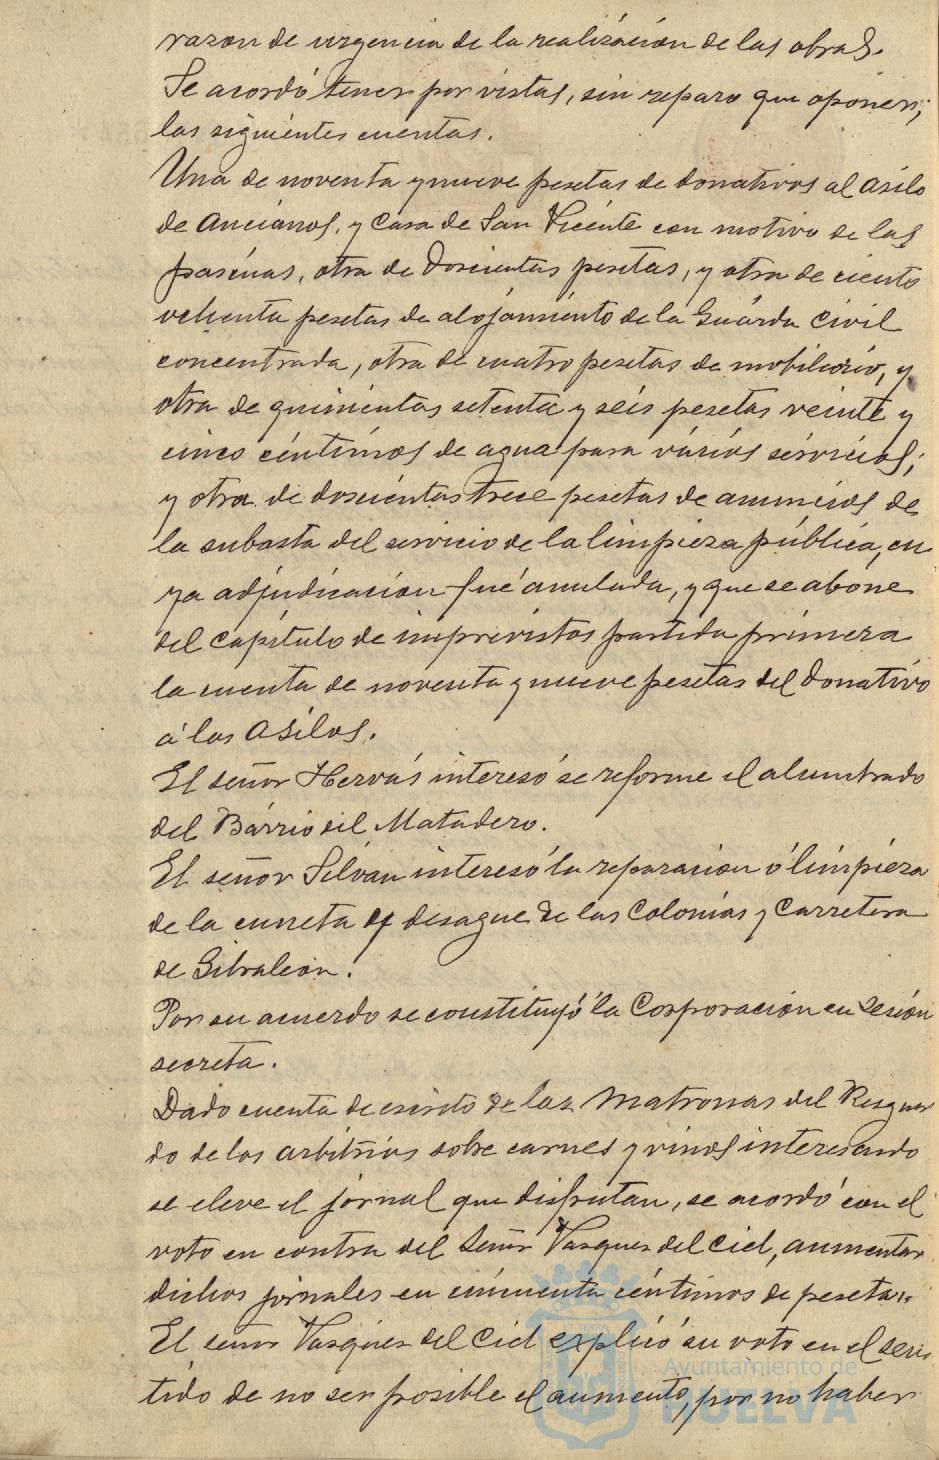 razon de urgencia de la realización de las obras.
Se acordó tener por vistas, sin reparo que oponer,
las siguientes cuentas.
Una de noventa y nueve pesetas de donativos al asilo
de ancianos, y Casa de San Vicente con motivo de las
pascuas, otra de Doscientas pesetas, y otra de ciento
ochenta pesetas de alojamiento de la Guárda Civil
concentrada, otra de cuatro pesetas de mobiliario, y
otra de quinientas setenta y séis pesetas veinte y
cinco céntimos de agua para vários servicios;
y otra de doscientas trece pesetas de anuncios de
la subasta del servicio de la limpieza pública, cu
ya adjudicación fué anulada, y que se abone
del capítulo de imprevistos partida primera
la cuenta de noventa y nueve pesetas del Donativo
á los Asilos.
El señor Hervás interesó se reforme el alumbrado
del Bárrio del Matadero.
El señor Silván interesó la reparacion ó limpieza
de la cuneta y desague de las Colonias y Carretera
de Gibraleon.
Por su acuerdo se constituyó la Corporación en sesión
secreta.
Dado cuenta de escrito de las Matronas del Resguar
do de los arbitrios sobre carnes y vinos interesando
se eleve el jornal que disfrutan, se acordó con el
voto en contra del Señor Vazquez del Cid, aumentar
dichos jornales en cincuenta céntimos de peseta.
El señor Vazquez del Cid explicó su voto en el sen
tido de no ser posible el aumento, por no haber
Ayuntamiento de
HUELVA